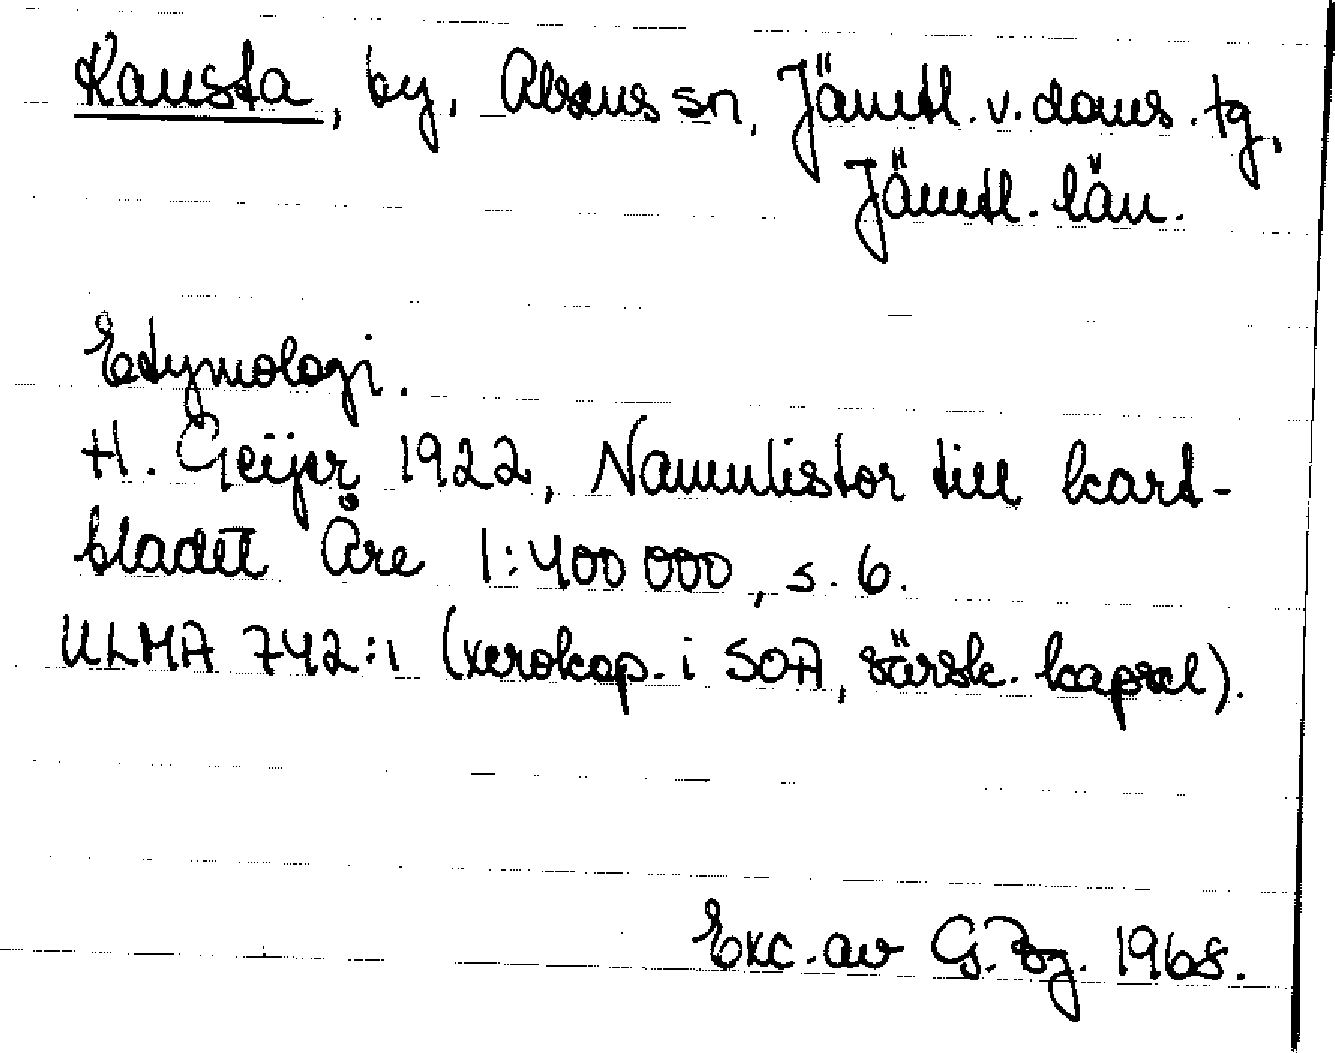 Kansta, by, Alsens sn, Jämtl. v. doms. tg,
Jämtl. län.
Etymologi.
H. Geijer 1922, Namnlistor till kart-
bladet Åre 1:400 000, s. 6.
ULMA 742:1 (xerokop. i SOA, särsk. kapsel).
Exc. av G. 1968.